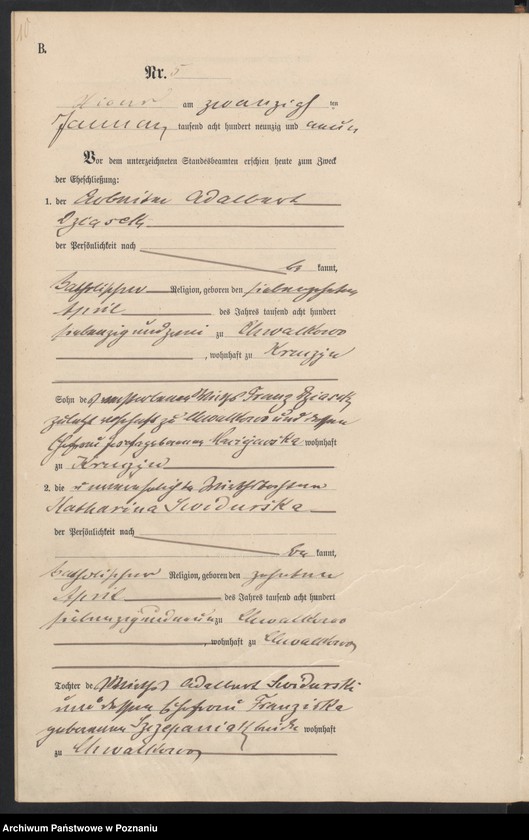 10
B.
Nr. 5
Xions am zwanzigsten
Januar tausend acht hundert neunzig und neun
Vor dem unterzeichneten Standesbeamten erschien heute zum Zweck
der Eheschließung:
1. der Arbeiter Adalbert
Dziasek
der Persönlichkeit nach
be kannt,
katholischer Religion, geboren den siebenzehnten
April des Jahres tausend acht hundert
siebenzig und zwei zu Chwalkowo
, wohnhaft zu
Sohn des verstorbenen Wirths Franz Dziasek
zuletzt wohnhaft zu Chwalkowo und dessen
Ehefrau Josepha geborenen wohnhaft
zu
2. die unverehelichte Wirthstochter
Katharina Swidurska
der Persönlichkeit nach
be kannt,
katholischer Religion, geboren den zehnten
April des Jahres tausend acht hundert
siebenzig und neun zu Chwalkowo
, wohnhaft zu Chwalkowo
Tochter des Wirths Adalbert Swidurski
und dessen Ehefrau Franziska
geborenen Szczepaniak beide wohnhaft
zu Chwalkowo
Archiwum Państwowe w Poznaniu